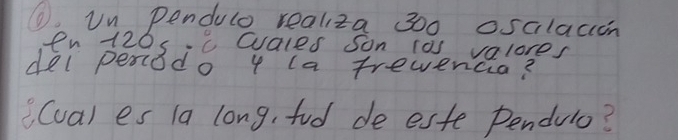 ①. Un Pendulo realiza 300 oscilación
en 120s. ¿ Cuales son los valores
del periodo y la frewencia?
¿Cual es la longitud de este Pendulo?